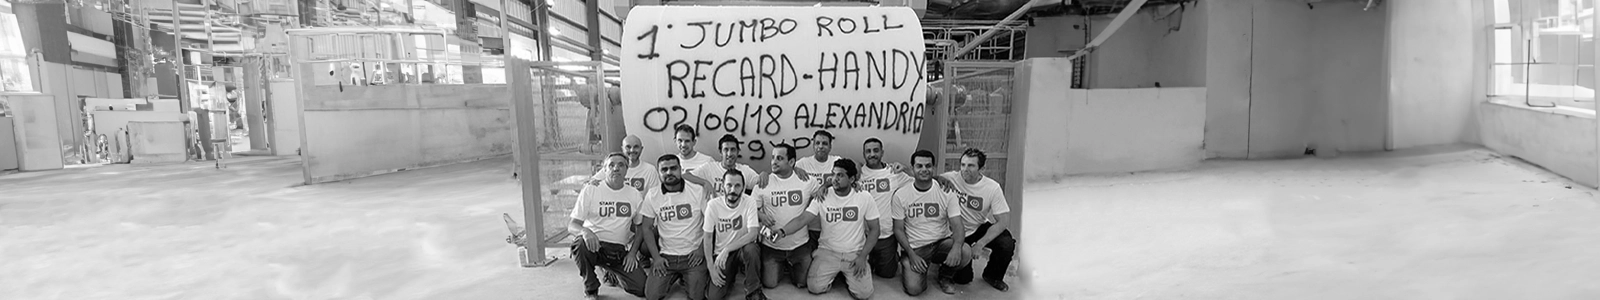 1° JUMBO ROLL
RECARD-HANDY
02/06/18 ALEXANDRIA
EGYPT
START
UP
START
UP
START
UP
START
UP
START
UP
START
UP
START
UP
UP